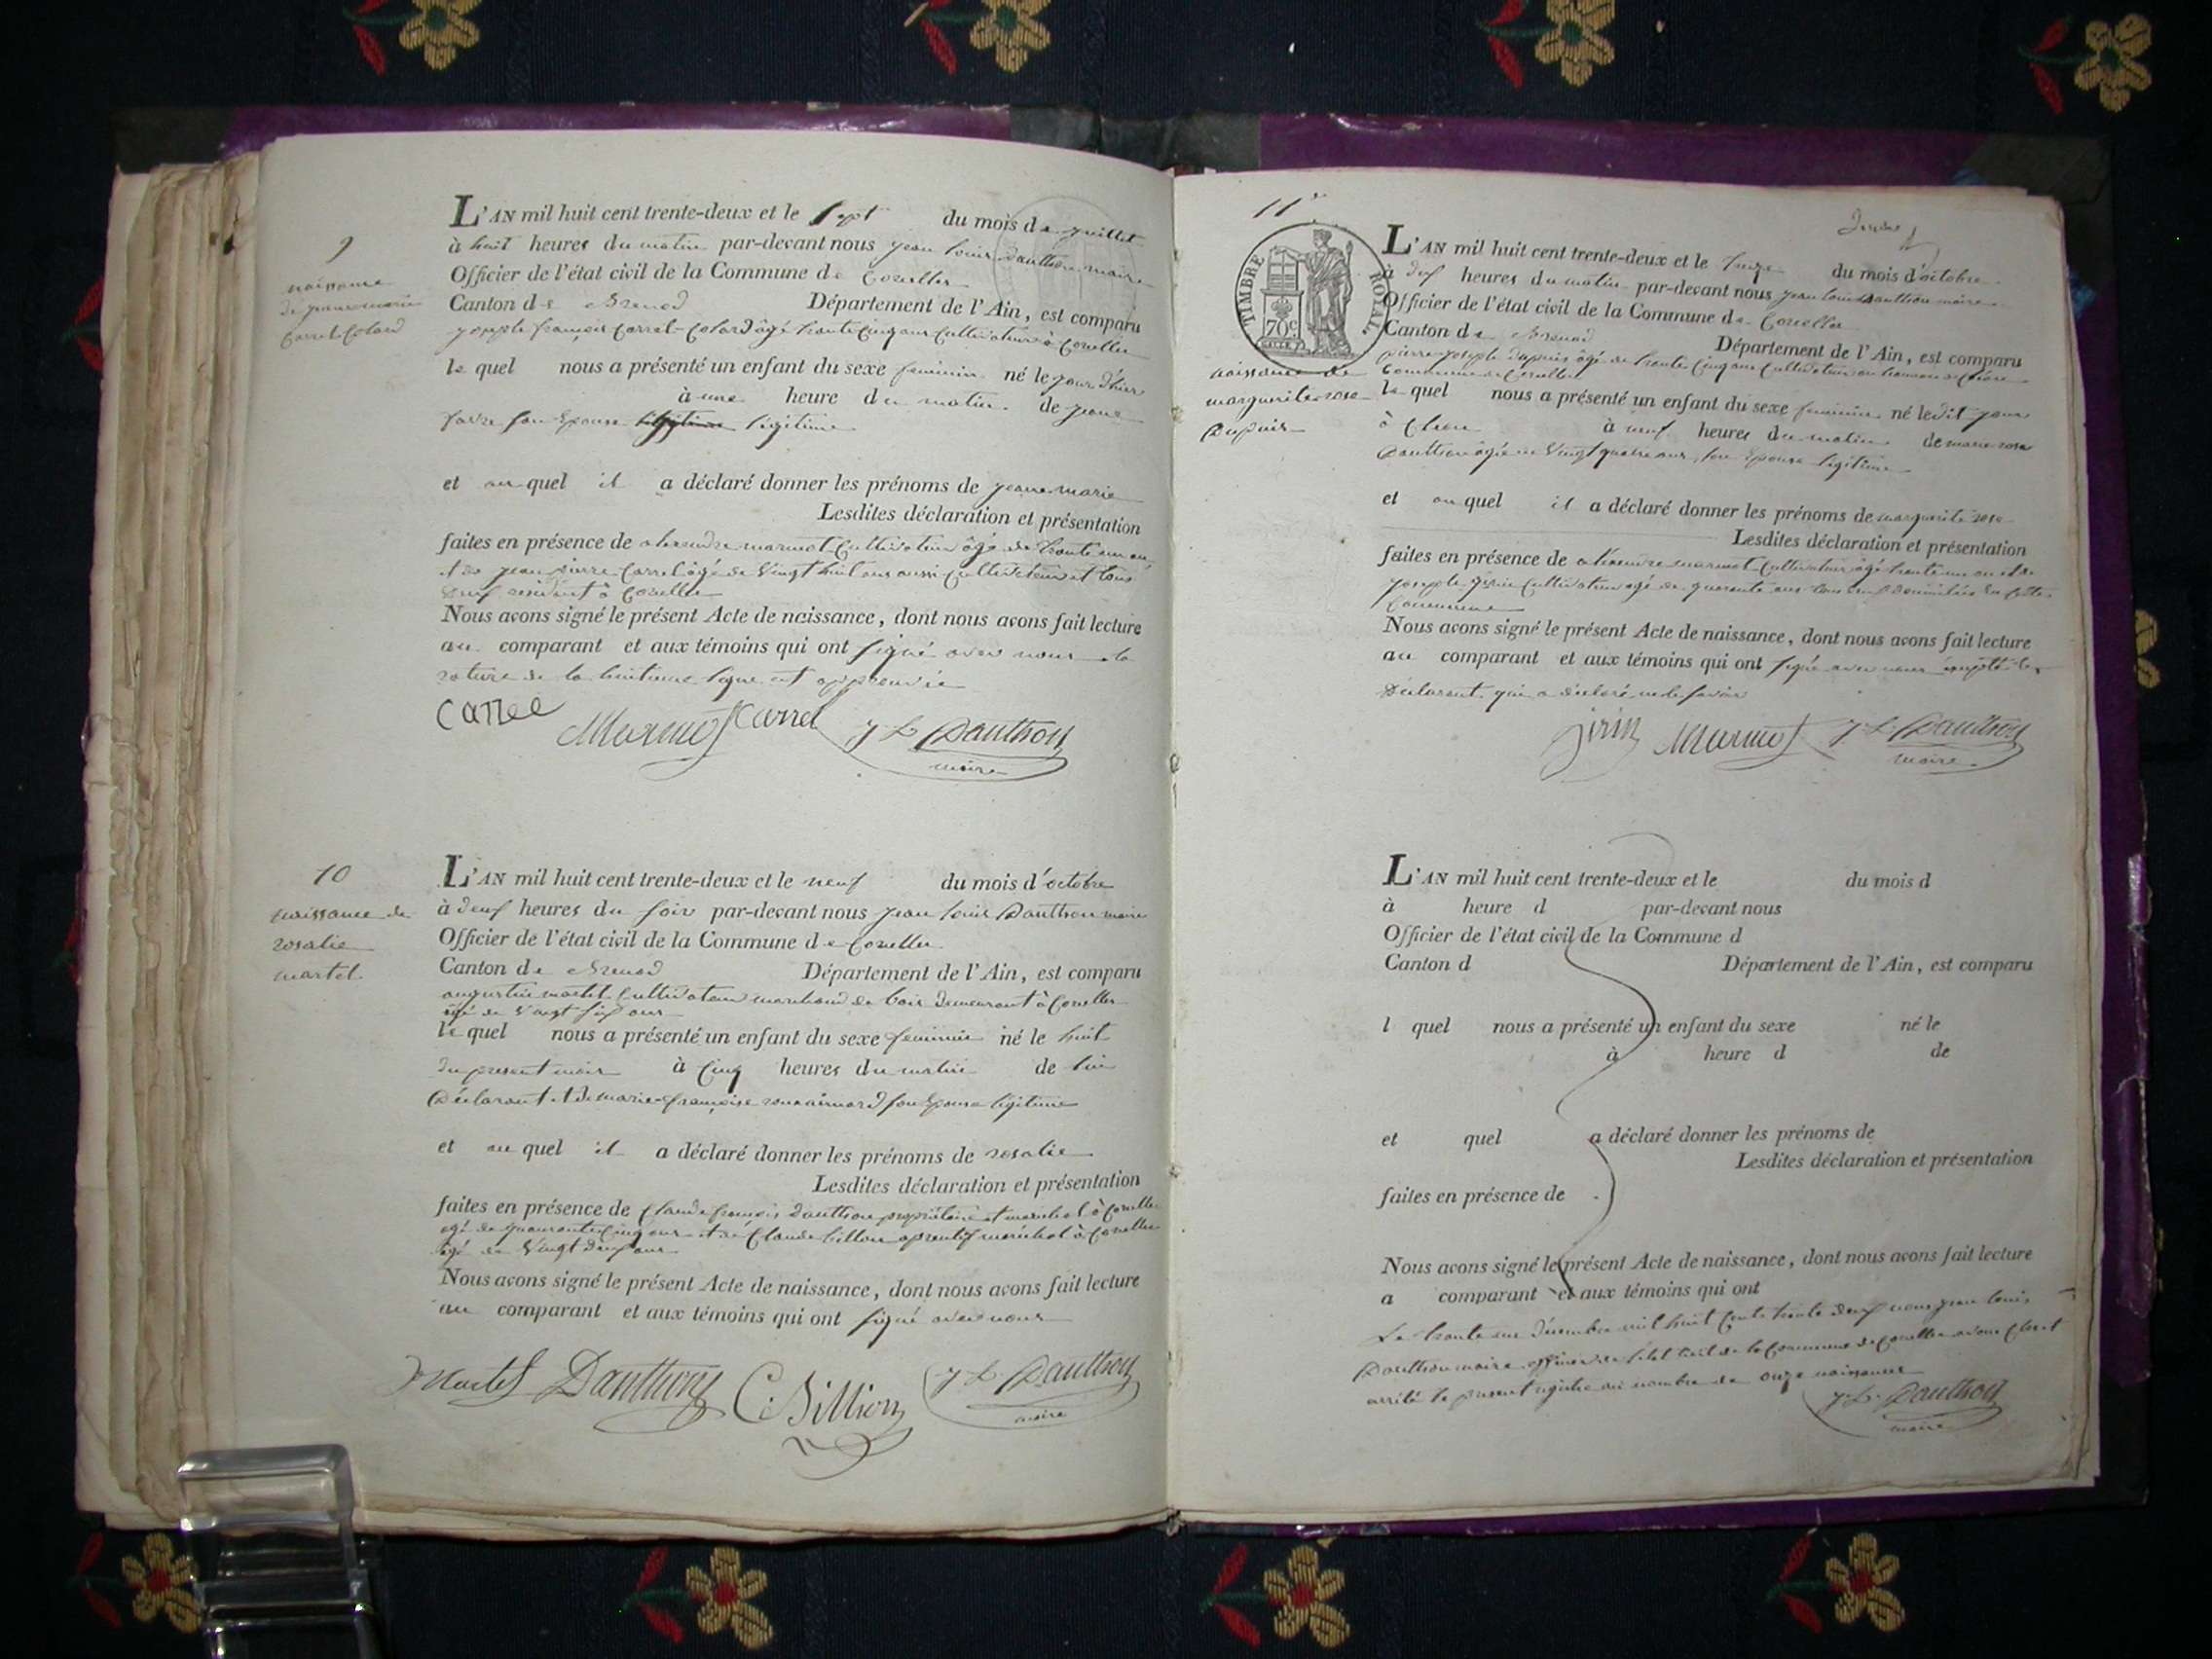 9
naissance
de jeane marie
Carrel Colard
L'AN mil huit cent trente-deux et le sept du mois de juillet
à huit heures du matin par-devant nous jean louis Dauthon maire
Officier de l'état civil de la Commune de Corcelles
Canton de Brenod Département de l'Ain, est comparu
joseph françois Carrel-Colard âgé trente cinq ans Cultivateur à Corcelles
le quel nous a présenté un enfant du sexe feminin né le jour d'hier
à une heure du matin de jeane
favre son Epouse legitime
et au quel il a déclaré donner les prénoms de jeane marie
Lesdites déclaration et présentation
faites en présence de alexandre marmot Cultivateur âgé de trente un an
et de jean pierre Carrel âgé de vingt huit ans aussi Cultivateur et tous
deux résidant à Corcelles
Nous avons signé le présent Acte de naissance, dont nous avons fait lecture
au comparant et aux témoins qui ont signé avec nous la
rature de la huitieme ligne est approuvée
Carrel Marmot Carrel J L Dauthon
maire
10
naissance de
rosalie
martel
L'AN mil huit cent trente-deux et le neuf du mois d'octobre
à deux heures du soir par-devant nous jean louis Dauthon maire
Officier de l'état civil de la Commune de Corcelles
Canton de Brenod Département de l'Ain, est comparu
augustin martel Cultivateur marchand de bois demeurant à Corcelles
âgé de vingt six ans
le quel nous a présenté un enfant du sexe feminin né le huit
du present mois à Cinq heures du matin de lui
Déclarant et de marie-françoise son Epouse légitime
et au quel il a déclaré donner les prénoms de rosalie
Lesdites déclaration et présentation
faites en présence de Claude françois Dauthon propriétaire et maréchal à Corcelles
agé de quarante Cinq ans et de Claude billion aprentif maréchal à Corcelles
âgé de vingt deux ans
Nous avons signé le présent Acte de naissance, dont nous avons fait lecture
au comparant et aux témoins qui ont signé avec nous
Martel Dauthon C. Billion J L Dauthon
maire
11
TIMBRE ROYAL
70c
naissance de
marguerite rose
Dupuis
L'AN mil huit cent trente-deux et le treize du mois d'octobre
à dix heures du matin par-devant nous jean louis Dauthon maire
Officier de l'état civil de la Commune de Corcelles
Canton de Brenod Département de l'Ain, est comparu
pierre joseph Dupuis âgé de trente Cinq ans Cultivateur au hameau de
Commune de Corcelles
le quel nous a présenté un enfant du sexe feminin né ledit jour
à neuf heures du matin de marie rose
Dauthon âgée de vingt quatre ans, son Epouse legitime
et au quel il a déclaré donner les prénoms de marguerite rose
Lesdites déclaration et présentation
faites en présence de alexandre marmot Cultivateur âgé trente un an et de
joseph jirin Cultivateur agé de quarante ans tous deux domiciliés en cette
Commune
Nous avons signé le présent Acte de naissance, dont nous avons fait lecture
au comparant et aux témoins qui ont signé avec nous le
Déclarant qui a déclaré ne le savoir
jirin Marmot J. L. Dauthon
maire
L'AN mil huit cent trente-deux et le du mois d
à heure d par-devant nous
Officier de l'état civil de la Commune d
Canton d Département de l'Ain, est comparu
l quel nous a présenté un enfant du sexe né le
à heure d de
et quel a déclaré donner les prénoms de
Lesdites déclaration et présentation
faites en présence de
Nous avons signé le présent Acte de naissance, dont nous avons fait lecture
a comparant et aux témoins qui ont
Le trente un décembre mil huit Cent trente deux nous jean louis
Dauthon maire officier de l'état civil de la Commune de Corcelles avons Clos et
arrêté le present registre au nombre de onze naissances
J. L. Dauthon
maire